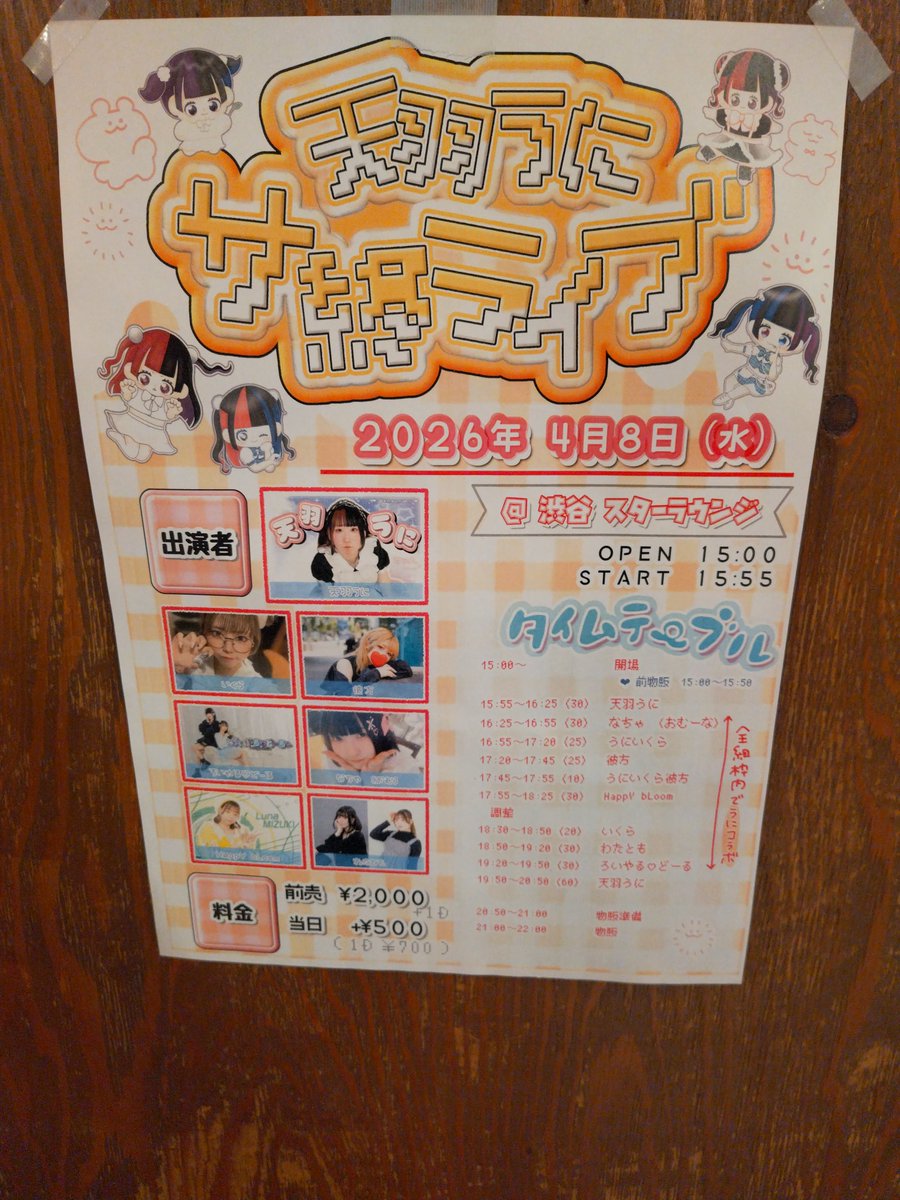 天羽うに
サ終ライブ
2026年 4月8日(水)
出演者
天羽うに
天羽うに
いくら
彼方
ろいやるどーる
Luna
MIZUKI
HappY bLoom
わたとも
料金
前売 ¥2,000
+1D
当日 +¥500
(1D ¥700)
@ 渋谷 スターラウンジ
OPEN 15:00
START 15:55
タイムテーブル
15:00~ 開場
❤ 前物販 15:00~15:50
15:55~16:25 (30) 天羽うに
16:25~16:55 (30) なちゃ (おむーな)
16:55~17:20 (25) うにいくら
17:20~17:45 (25) 彼方
17:45~17:55 (10) うにいくら彼方
17:55~18:25 (30) HappY bLoom
調整
18:30~18:50 (20) いくら
18:50~19:20 (30) わたとも
19:20~19:50 (30) ろいやる♡どーる
19:50~20:50 (60) 天羽うに
20:50~21:00 物販準備
21:00~22:00 物販
全組枠内でうにコラボ